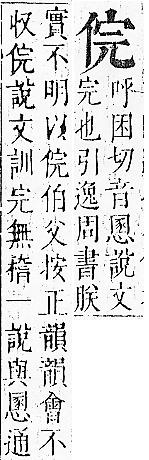 俒
呼困切音慁說文
完也引逸周書朕
實不明以俒伯父按正韻韻會不
収俒說文訓完無稽一說與慁通